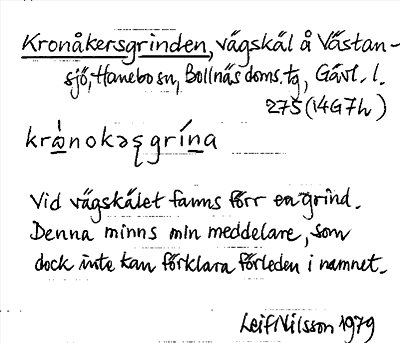 Kronåkersgrinden, vägskäl å Västan-
sjö, Hanebo sn, Bollnäs doms. tg, Gävl. l.
275 (14G7h)
krà̊nokəʂgrína
Vid vägskälet fanns förr en grind.
Denna minns min meddelare, som
dock inte kan förklara förleden i namnet.
Leif Nilsson 1979